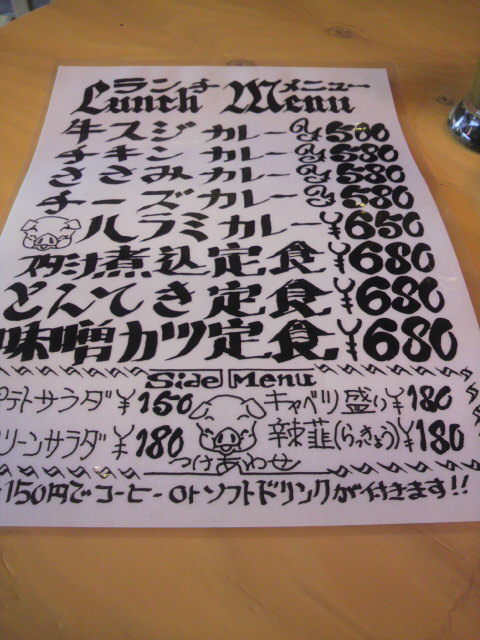 ランチメニュー
Lunch Menu
牛スジカレー ¥500
チキンカレー ¥580
ささみカレー ¥580
チーズカレー ¥580
ハラミカレー ¥650
煮込定食 ¥680
とんてき定食 ¥680
味噌カツ定食 ¥680
Side Menu
ポテトサラダ ¥150 キャベツ盛り ¥180
リーンサラダ ¥180 辣韮(らっきょう) ¥180
つけあわせ
150円でコーヒー orソフトドリンクが付きます!!